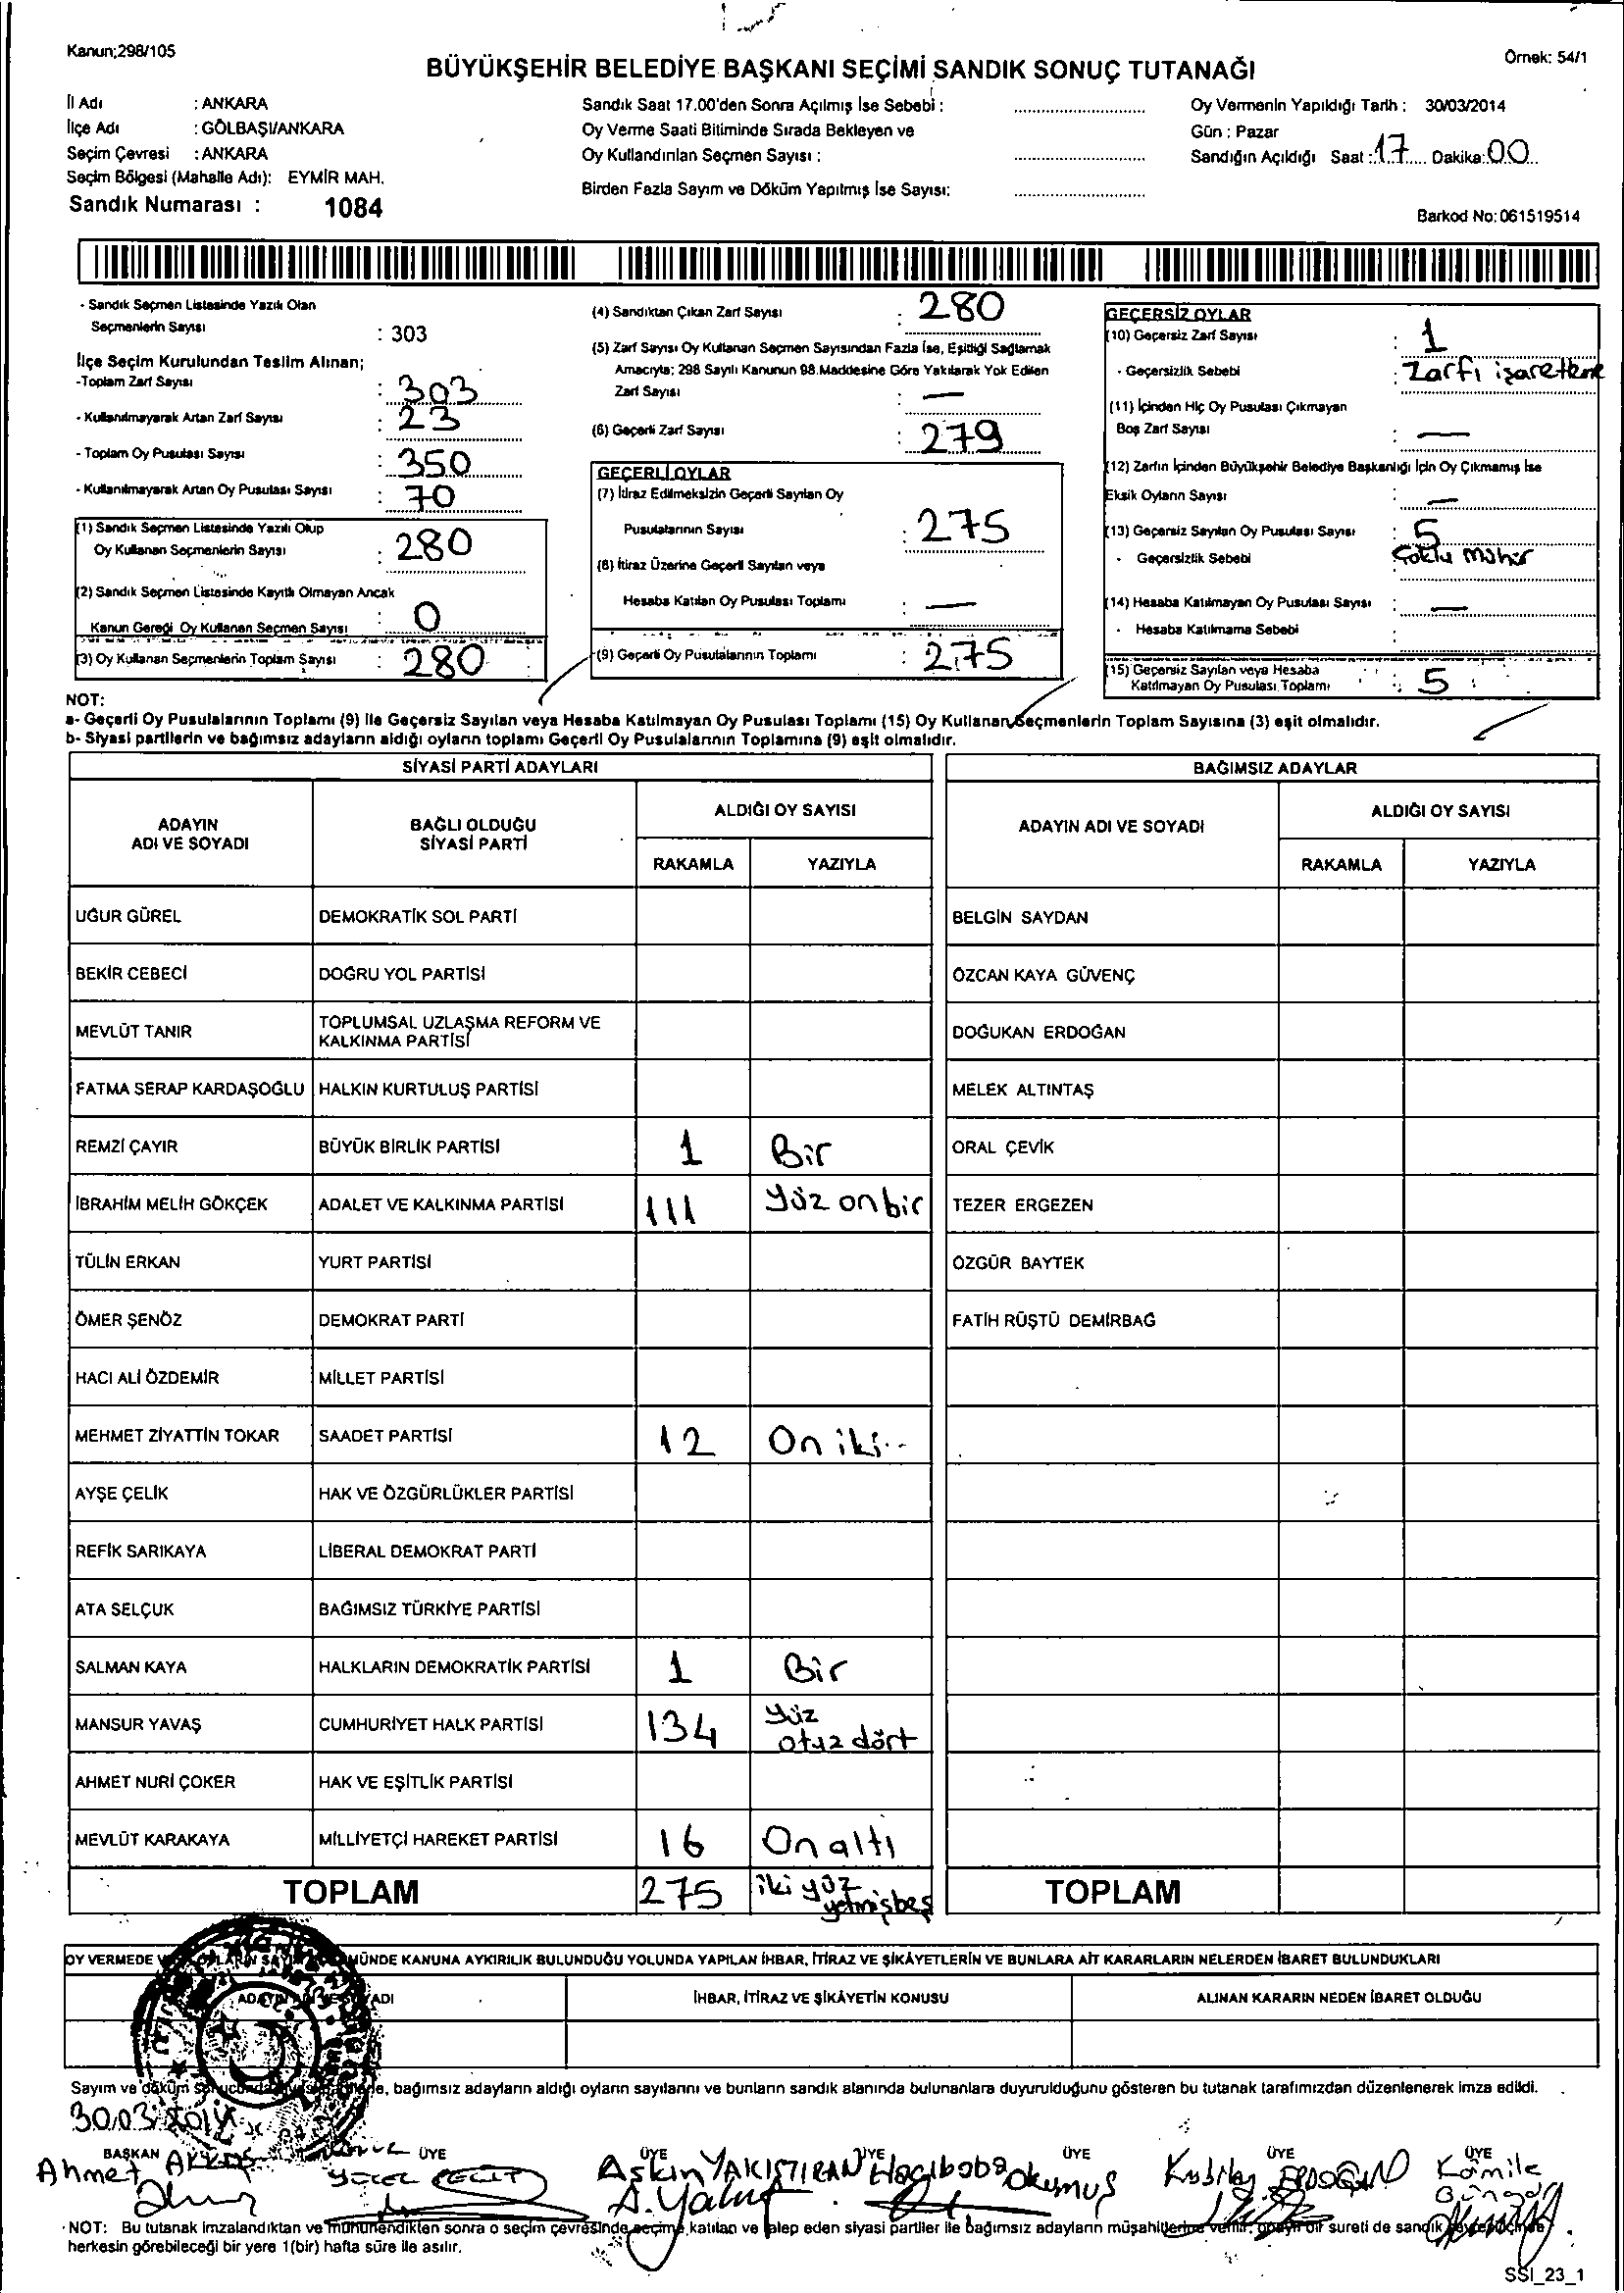 Kanun;298/105
Örnek: 54/1
BÜYÜKŞEHİR BELEDİYE BAŞKANI SEÇİMİ SANDIK SONUÇ TUTANAĞI
İl Adı : ANKARA
İlçe Adı : GÖLBAŞI/ANKARA
Seçim Çevresi : ANKARA
Seçim Bölgesi (Mahalle Adı): EYMİR MAH.
Sandık Numarası : 1084
Sandık Saat 17.00'den Sonra Açılmış İse Sebebi :
Oy Verme Saati Bitiminde Sırada Bekleyen ve
Oy Kullandırılan Seçmen Sayısı :
Birden Fazla Sayım ve Döküm Yapılmış İse Sayısı:
Oy Vermenin Yapıldığı Tarih : 30/03/2014
Gün : Pazar
Sandığın Açıldığı Saat : 17 Dakika: 00
Barkod No: 061519514
- Sandık Seçmen Listesinde Yazılı Olan
Seçmenlerin Sayısı : 303
İlçe Seçim Kurulundan Teslim Alınan;
-Toplam Zarf Sayısı : 303
- Kullanılmayarak Artan Zarf Sayısı : 23
- Toplam Oy Pusulası Sayısı : 350
- Kullanılmayarak Artan Oy Pusulası Sayısı : 70
(1) Sandık Seçmen Listesinde Yazılı Olup
Oy Kullanan Seçmenlerin Sayısı : 280
(2) Sandık Seçmen Listesinde Kayıtlı Olmayan Ancak
Kanun Gereği Oy Kullanan Seçmen Sayısı : 0
(3) Oy Kullanan Seçmenlerin Toplam Sayısı : 280
(4) Sandıktan Çıkan Zarf Sayısı : 280
(5) Zarf Sayısı Oy Kullanan Seçmen Sayısından Fazla İse, Eşitliği Sağlamak
Amacıyla; 298 Sayılı Kanunun 98.Maddesine Göre Yakılarak Yok Edilen
Zarf Sayısı : —
(6) Geçerli Zarf Sayısı : 279
GEÇERLİ OYLAR
(7) İtiraz Edilmeksizin Geçerli Sayılan Oy
Pusulalarının Sayısı : 275
(8) İtiraz Üzerine Geçerli Sayılan veya
Hesaba Katılan Oy Pusulası Toplamı : —
(9) Geçerli Oy Pusulalarının Toplamı : 275
GEÇERSİZ OYLAR
(10) Geçersiz Zarf Sayısı : 1
- Geçersizlik Sebebi : Zarfı işaretleme
(11) İçinden Hiç Oy Pusulası Çıkmayan
Boş Zarf Sayısı : —
(12) Zarfın İçinden Büyükşehir Belediye Başkanlığı İçin Oy Çıkmamış İse
Eksik Oyların Sayısı : —
(13) Geçersiz Sayılan Oy Pusulası Sayısı : 5
- Geçersizlik Sebebi : Çoklu mühür
(14) Hesaba Katılmayan Oy Pusulası Sayısı : —
- Hesaba Katılmama Sebebi :
(15) Geçersiz Sayılan veya Hesaba
Katılmayan Oy Pusulası Toplamı : 5
NOT:
a- Geçerli Oy Pusulalarının Toplamı (9) ile Geçersiz Sayılan veya Hesaba Katılmayan Oy Pusulası Toplamı (15) Oy Kullanan Seçmenlerin Toplam Sayısına (3) eşit olmalıdır.
b- Siyasi partilerin ve bağımsız adayların aldığı oyların toplamı Geçerli Oy Pusulalarının Toplamına (9) eşit olmalıdır.
SİYASİ PARTİ ADAYLARI
BAĞIMSIZ ADAYLAR
ADAYIN ADI VE SOYADI
BAĞLI OLDUĞU SİYASİ PARTİ
ALDIĞI OY SAYISI
RAKAMLA YAZIYLA
ADAYIN ADI VE SOYADI
ALDIĞI OY SAYISI
RAKAMLA YAZIYLA
UĞUR GÜREL DEMOKRATİK SOL PARTİ BELGİN SAYDAN
BEKİR CEBECİ DOĞRU YOL PARTİSİ ÖZCAN KAYA GÜVENÇ
MEVLÜT TANIR TOPLUMSAL UZLAŞMA REFORM VE KALKINMA PARTİSİ DOĞUKAN ERDOĞAN
FATMA SERAP KARDAŞOĞLU HALKIN KURTULUŞ PARTİSİ MELEK ALTINTAŞ
REMZİ ÇAYIR BÜYÜK BİRLİK PARTİSİ 1 Bir ORAL ÇEVİK
İBRAHİM MELİH GÖKÇEK ADALET VE KALKINMA PARTİSİ 111 Yüz onbir TEZER ERGEZEN
TÜLİN ERKAN YURT PARTİSİ ÖZGÜR BAYTEK
ÖMER ŞENÖZ DEMOKRAT PARTİ FATİH RÜŞTÜ DEMİRBAĞ
HACI ALİ ÖZDEMİR MİLLET PARTİSİ
MEHMET ZİYATTİN TOKAR SAADET PARTİSİ 12 On iki
AYŞE ÇELİK HAK VE ÖZGÜRLÜKLER PARTİSİ
REFİK SARIKAYA LİBERAL DEMOKRAT PARTİ
ATA SELÇUK BAĞIMSIZ TÜRKİYE PARTİSİ
SALMAN KAYA HALKLARIN DEMOKRATİK PARTİSİ 1 Bir
MANSUR YAVAŞ CUMHURİYET HALK PARTİSİ 134 Yüz otuz dört
AHMET NURİ ÇOKER HAK VE EŞİTLİK PARTİSİ
MEVLÜT KARAKAYA MİLLİYETÇİ HAREKET PARTİSİ 16 On altı
TOPLAM 275 iki yüz yetmişbeş TOPLAM
OY VERMEDE KANUNA AYKIRILIK BULUNDUĞU YOLUNDA YAPILAN İHBAR, İTİRAZ VE ŞİKÂYETLERİN VE BUNLARA AİT KARARLARIN NELERDEN İBARET BULUNDUKLARI
İHBAR, İTİRAZ VE ŞİKÂYETİN KONUSU
ALINAN KARARIN NEDEN İBARET OLDUĞU
Sayım ve döküm bağımsız adayların aldığı oyların sayılarını ve bunların sandık alanında bulunanlara duyurulduğunu gösteren bu tutanak tarafımızdan düzenlenerek imza edildi.
30.03.2014
BAŞKAN ÜYE ÜYE ÜYE ÜYE ÜYE ÜYE
Ahmet Aşkın YAKIŞTIRAN Hacıbaba Okumuş Kubilay ERDOĞAN Kamile
NOT: Bu tutanak imzalandıktan ve mühürlendikten sonra o seçim çevresinde seçime katılan ve talep eden siyasi partiler ile bağımsız adayların müşahitlerine verilir, onaylı bir sureti de sandık
herkesin görebileceği bir yere 1(bir) hafta süre ile asılır.
SSI_23_1